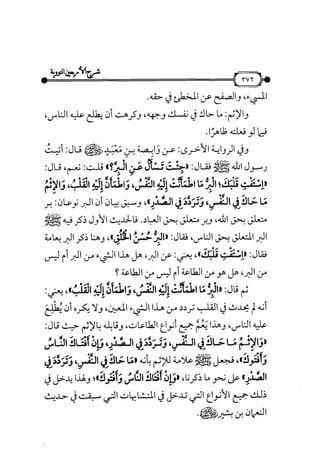 شرح الأربعين النووية
٣٧٢
المسيء، والصفح عن المخطئ في حقه.
والإثم: ما حاك في نفسك وجهه، وكرهت أن يطلع عليه الناس،
فيما لو فعلته ظاهرًا.
وفي الرواية الأخرى: عن وابصة بن معبد ﷺ قال: أتيتُ
رسول الله ﷺ فقال: «جِئْتَ تَسْأَلُ عَنِ الْبِرِّ؟» قلت: نعم، قال:
«اسْتَفْتِ قَلْبَكَ؛ الْبِرُّ مَا اطْمَأَنَّتْ إِلَيْهِ النَّفْسُ، وَاطْمَأَنَّ إِلَيْهِ الْقَلْبُ، وَالإِثْمُ
مَا حَاكَ فِي النَّفْسِ، وَتَرَدَّدَ فِي الصَّدْرِ»، وسبق بيان أن البر نوعان: بر
متعلق بحق الله، وبر متعلق بحق العباد. فالحديث الأول ذكر فيه ﷺ
البر المتعلق بحق الناس، فقال: «الْبِرُّ حُسْنُ الْخُلُقِ»، وهنا ذكر البر بعامة
فقال: «اسْتَفْتِ قَلْبَكَ»، يعني: عن البر، هل هذا الشيء من البر أم ليس
من البر، هل هو من الطاعة أم ليس من الطاعة ؟
ثم قال: «الْبِرُّ مَا اطْمَأَنَّتْ إِلَيْهِ النَّفْسُ، وَاطْمَأَنَّ إِلَيْهِ الْقَلْبُ»، يعني:
أنه لم يحدث في القلب تردد من هذا الشيء المعين، ولا يكره أن يُطَّلِعَ
عليه الناس، وهذا يَعُمُّ جميع أنواع الطاعات، وقابله بالإثم حيث قال:
«وَالإِثْمُ مَا حَاكَ فِي النَّفْسِ، وَتَرَدَّدَ فِي الصَّدْرِ، وَإِنْ أَفْتَاكَ النَّاسُ
وَأَفْتَوكَ»، فجعل ﷺ علامة للإثم بأنه «مَا حَاكَ فِي النَّفْسِ، وَتَرَدَّدَ فِي
الصَّدْرِ» على نحو ما ذكرنا، «وَإِنْ أَفْتَاكَ النَّاسُ وَأَفْتَوكَ»؛ ولهذا يدخل في
ذلك جميع الأنواع التي تدخل في المتشابهات التي سبقت في حديث
النعمان بن بشير ﷺ.